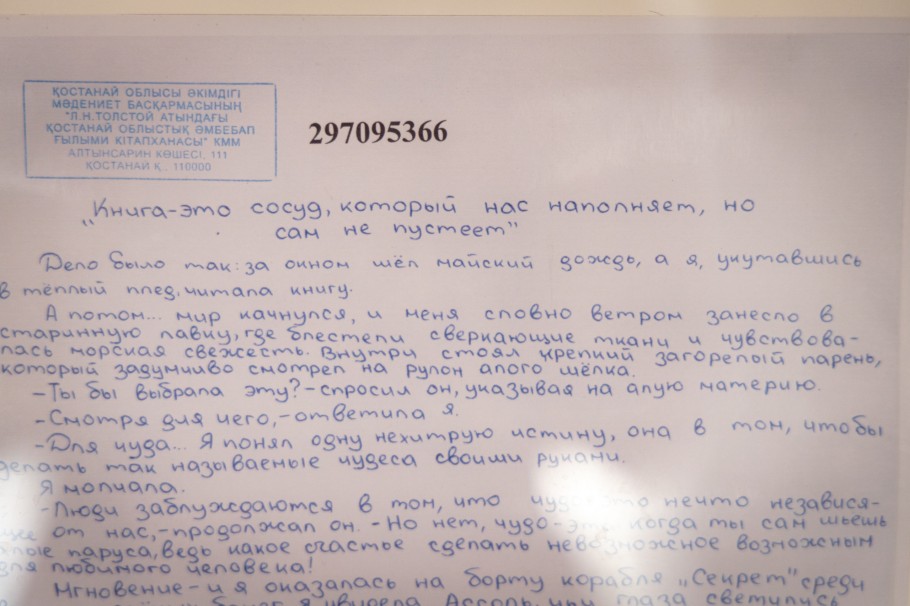 ҚОСТАНАЙ ОБЛЫСЫ ӘКІМДІГІ
МӘДЕНИЕТ БАСҚАРМАСЫНЫҢ
"Л.Н.ТОЛСТОЙ АТЫНДАҒЫ
ҚОСТАНАЙ ОБЛЫСТЫҚ ӘМБЕБАП
ҒЫЛЫМИ КІТАПХАНАСЫ" КММ
АЛТЫНСАРИН КӨШЕСІ, 111
ҚОСТАНАЙ Қ., 110000
297095366
„Книга-это сосуд, который нас наполняет, но
сам не пустеет"
Дело было так: за окном шёл майский дождь, а я, укутавшись
в тёплый плед, читала книгу.
А потом... мир качнулся, и меня словно ветром занесло в
старинную лавку, где блестели сверкающие ткани и чувствова-
лась морская свежесть. Внутри стоял крепкий загорелый парень,
который задумчиво смотрел на рулон алого шёлка.
-Ты бы выбрала эту? -спросил он, указывая на алую материю.
-Смотря для чего, -ответила я.
-Для чуда... Я понял одну нехитрую истину, она в том, чтобы
делать так называемые чудеса своими руками.
Я молчала.
-Люди заблуждаются в том, что нечто независя-
от нас, -продолжал он. -Но нет, чудо- когда ты сам шьешь
алые паруса, ведь какое счастье сделать невозможное возможным
для любимого человека!
Мгновение - и я оказалась на борту корабля „Секрет" среди
я увидела Ассоль, чьи глаза светились